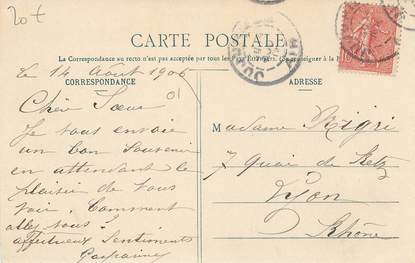 20 €
CARTE POSTALE
La Correspondance au recto n'est pas acceptée par tous les Pays Étrangers. (Se renseigner à la Poste)
CORRESPONDANCE
ADRESSE
Le 14 Août 1906
Chère Sœur
Je vous envoie
un bon Souvenir
en attendant le
plaisir de vous
voir. Comment
allez vous ?
affectueux Sentiments
Madame Nigri
7 Quai de Retz
Lyon
Rhône